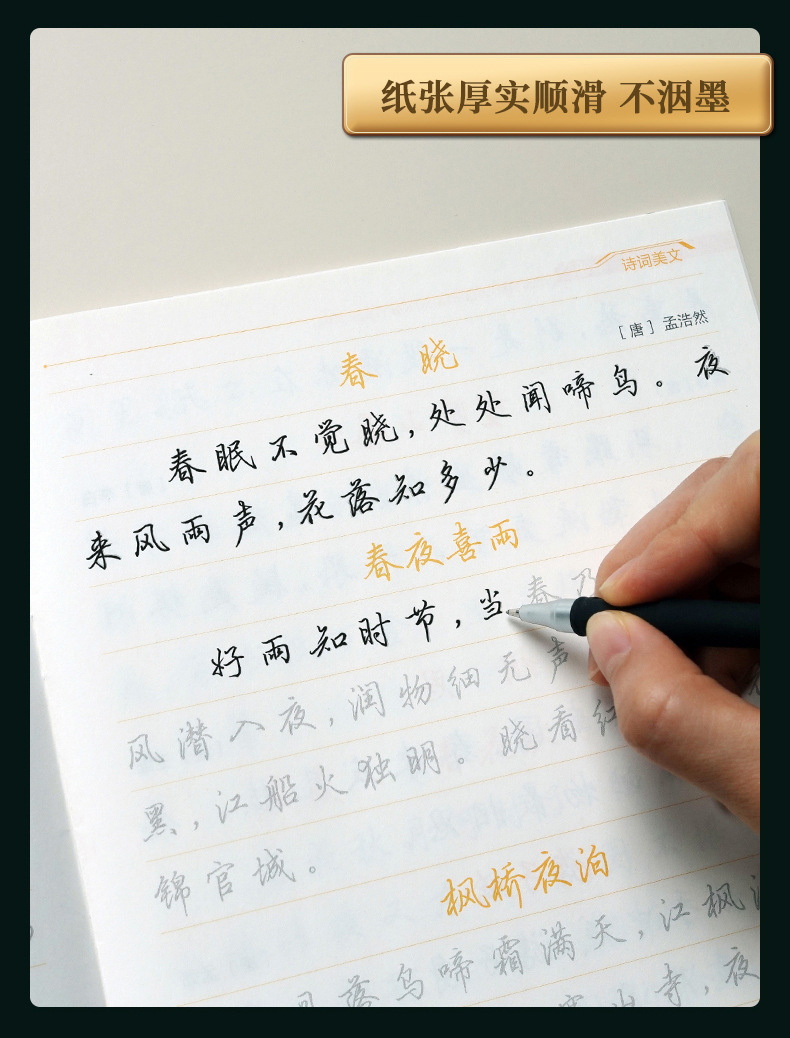 纸张厚实顺滑 不洇墨
诗词美文
春 晓
[唐] 孟浩然
春眠不觉晓,处处闻啼鸟。夜
来风雨声,花落知多少。
春夜喜雨
好雨知时节,当春乃
风潜入夜,润物细无声
黑,江船火独明。晓看红
锦官城。
枫桥夜泊
落乌啼霜满天,江枫
山寺,夜